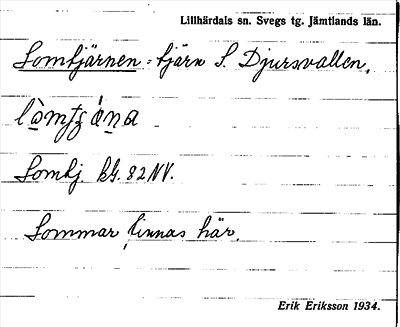 Lillhärdals sn. Svegs tg. Jämtlands län.
Lomtjärnen = tjärn S. Djursvallen.
Lomtj. kbl. 82 NV.
Lommar finnas här.
Erik Eriksson 1934.